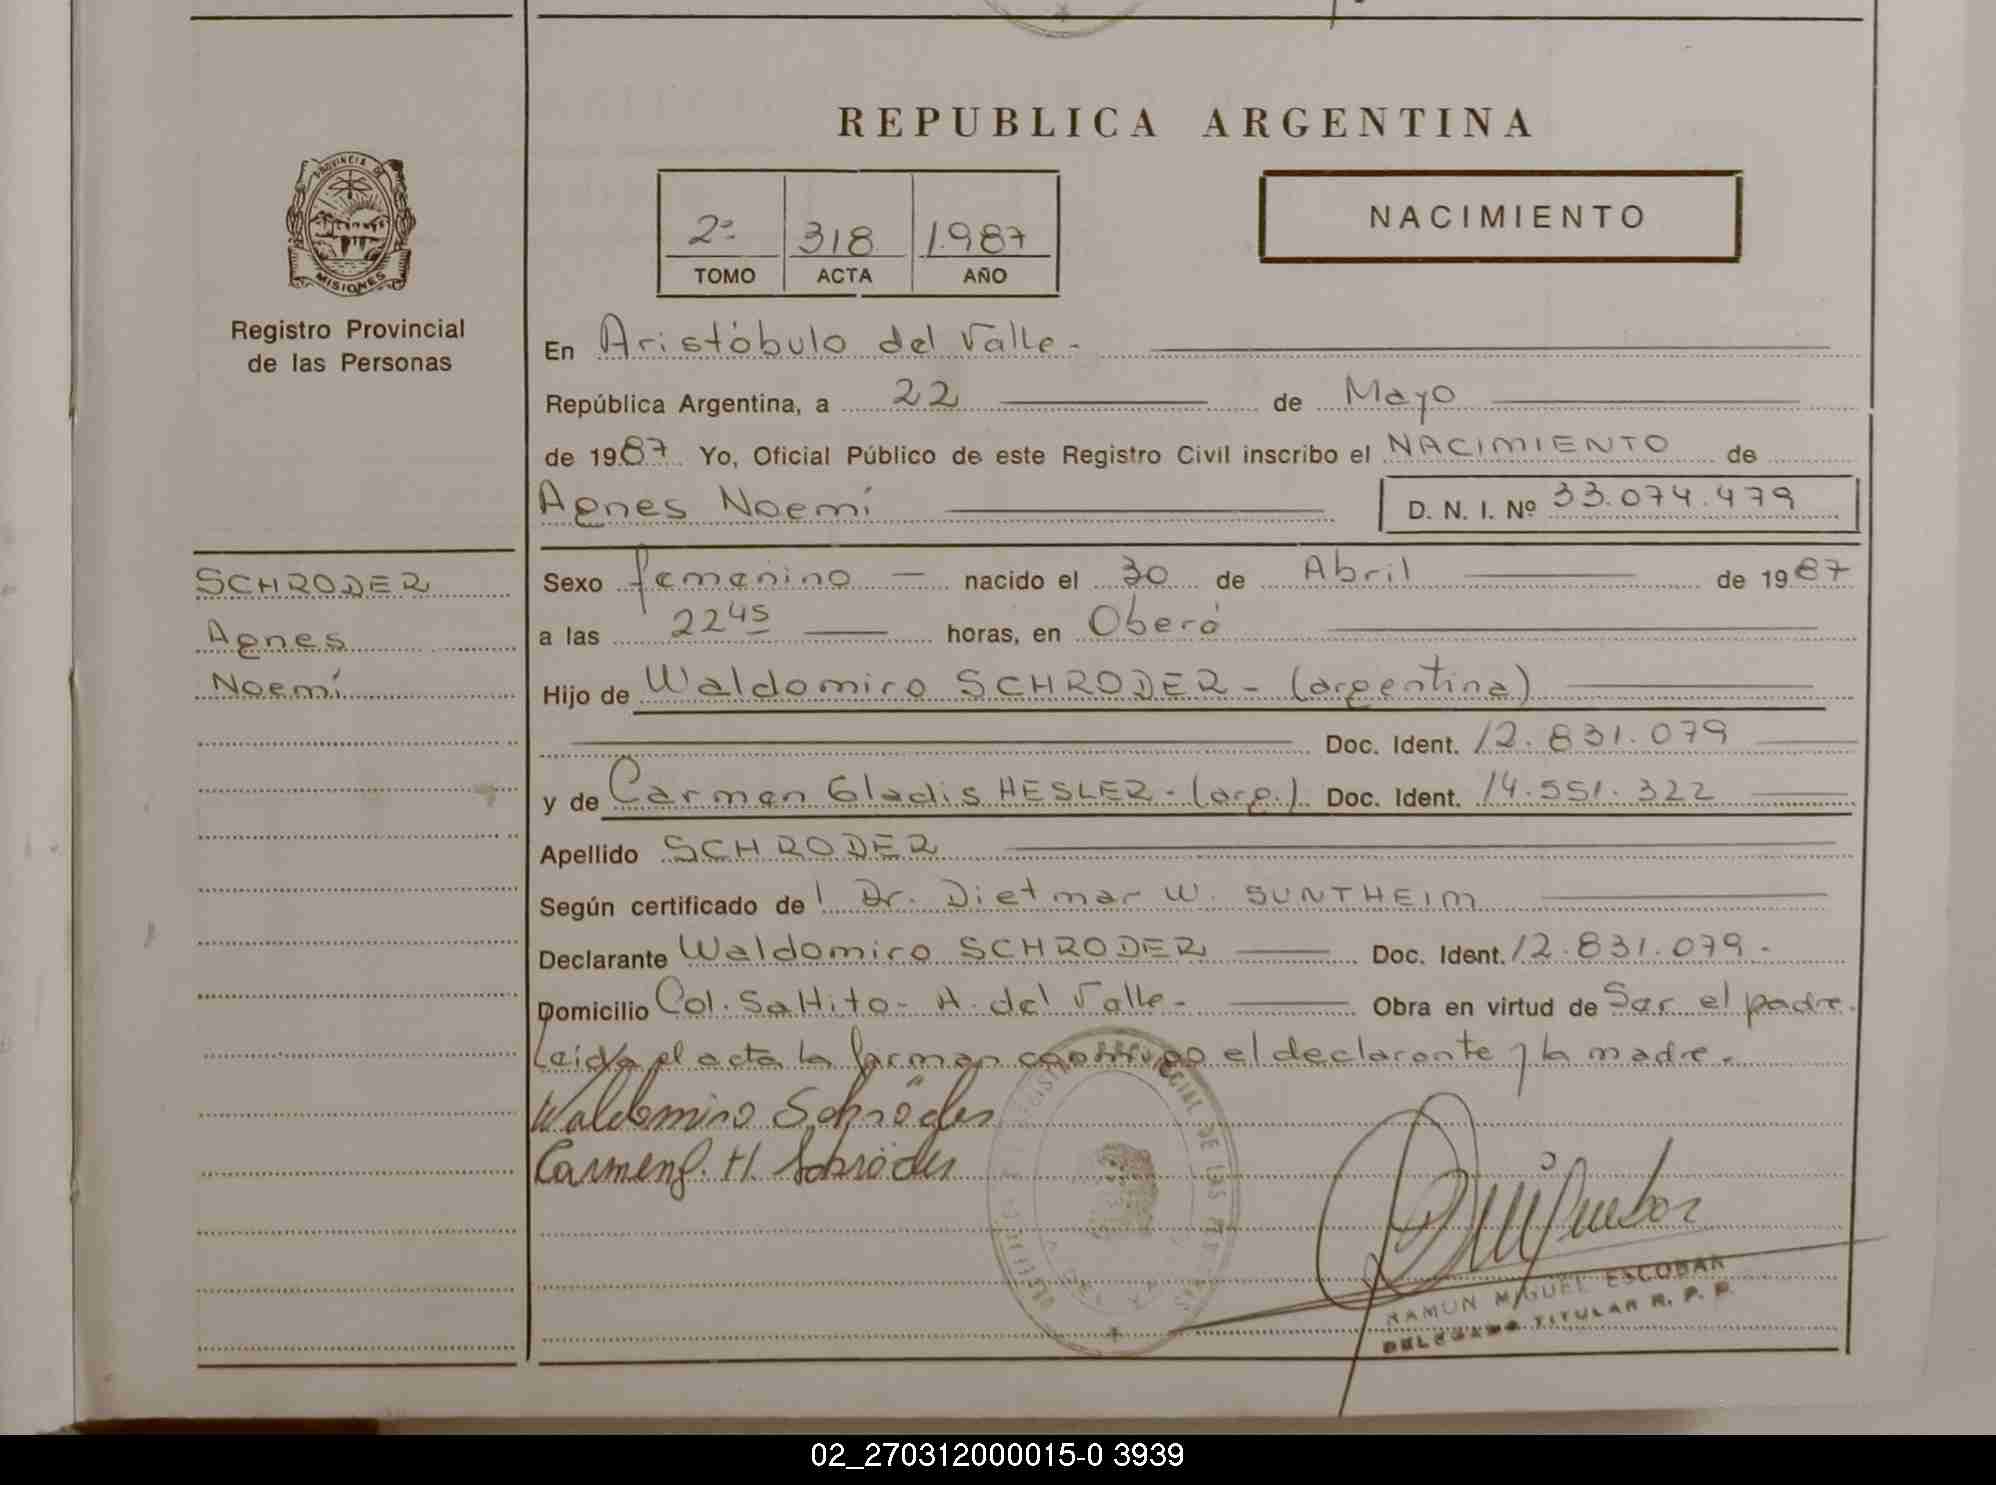 REPUBLICA ARGENTINA
PROVINCIA DE
MISIONES
Registro Provincial
de las Personas
2º 318 1987
TOMO ACTA AÑO
NACIMIENTO
En Aristóbulo del Valle -
República Argentina, a 22 de Mayo
de 1987 Yo, Oficial Público de este Registro Civil inscribo el NACIMIENTO de
Agnes Noemí D. N. I. Nº 33.074.479
SCHRODER
Agnes
Noemí
Sexo femenino nacido el 30 de Abril de 1987
a las 22 45 horas, en Oberá
Hijo de Waldomiro SCHRODER - (argentina)
Doc. Ident. 12.831.079
y de Carmen Gladis HESLER - (arg.) Doc. Ident. 14.551.322
Apellido SCHRODER
Según certificado de l Dr. Dietmar W. SUNTHEIM
Declarante Waldomiro SCHRODER Doc. Ident. 12.831.079 -
Domicilio Col. Saltito - A. del Valle - Obra en virtud de Ser el padre.
Leida el acta la firman conmigo el declarante y la madre.
Waldomiro Schröder
Carmen G. H. Schröder
DE LAS
RAMON MIGUEL ESCOBAR
DELEGADO TITULAR R. P. P.
02_270312000015-0 3939